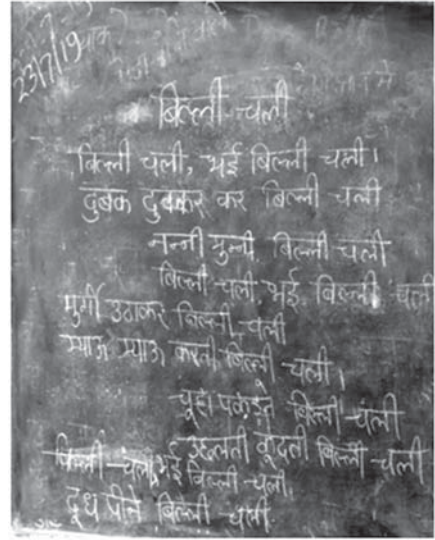 23/7/19
बिल्ली चली
बिल्ली चली, भई बिल्ली चली।
दुबक दुबकर कर बिल्ली चली
नन्नी मुन्नी बिल्ली चली
बिल्ली चली, भई बिल्ली चली
मुर्गी उठाकर बिल्ली चली
म्याऊ म्याऊ करती बिल्ली चली।
चूहा पकड़ते बिल्ली चली
उछलती कूदती बिल्ली चली
बिल्ली चली, भई बिल्ली चली,
दूध पीने बिल्ली चली